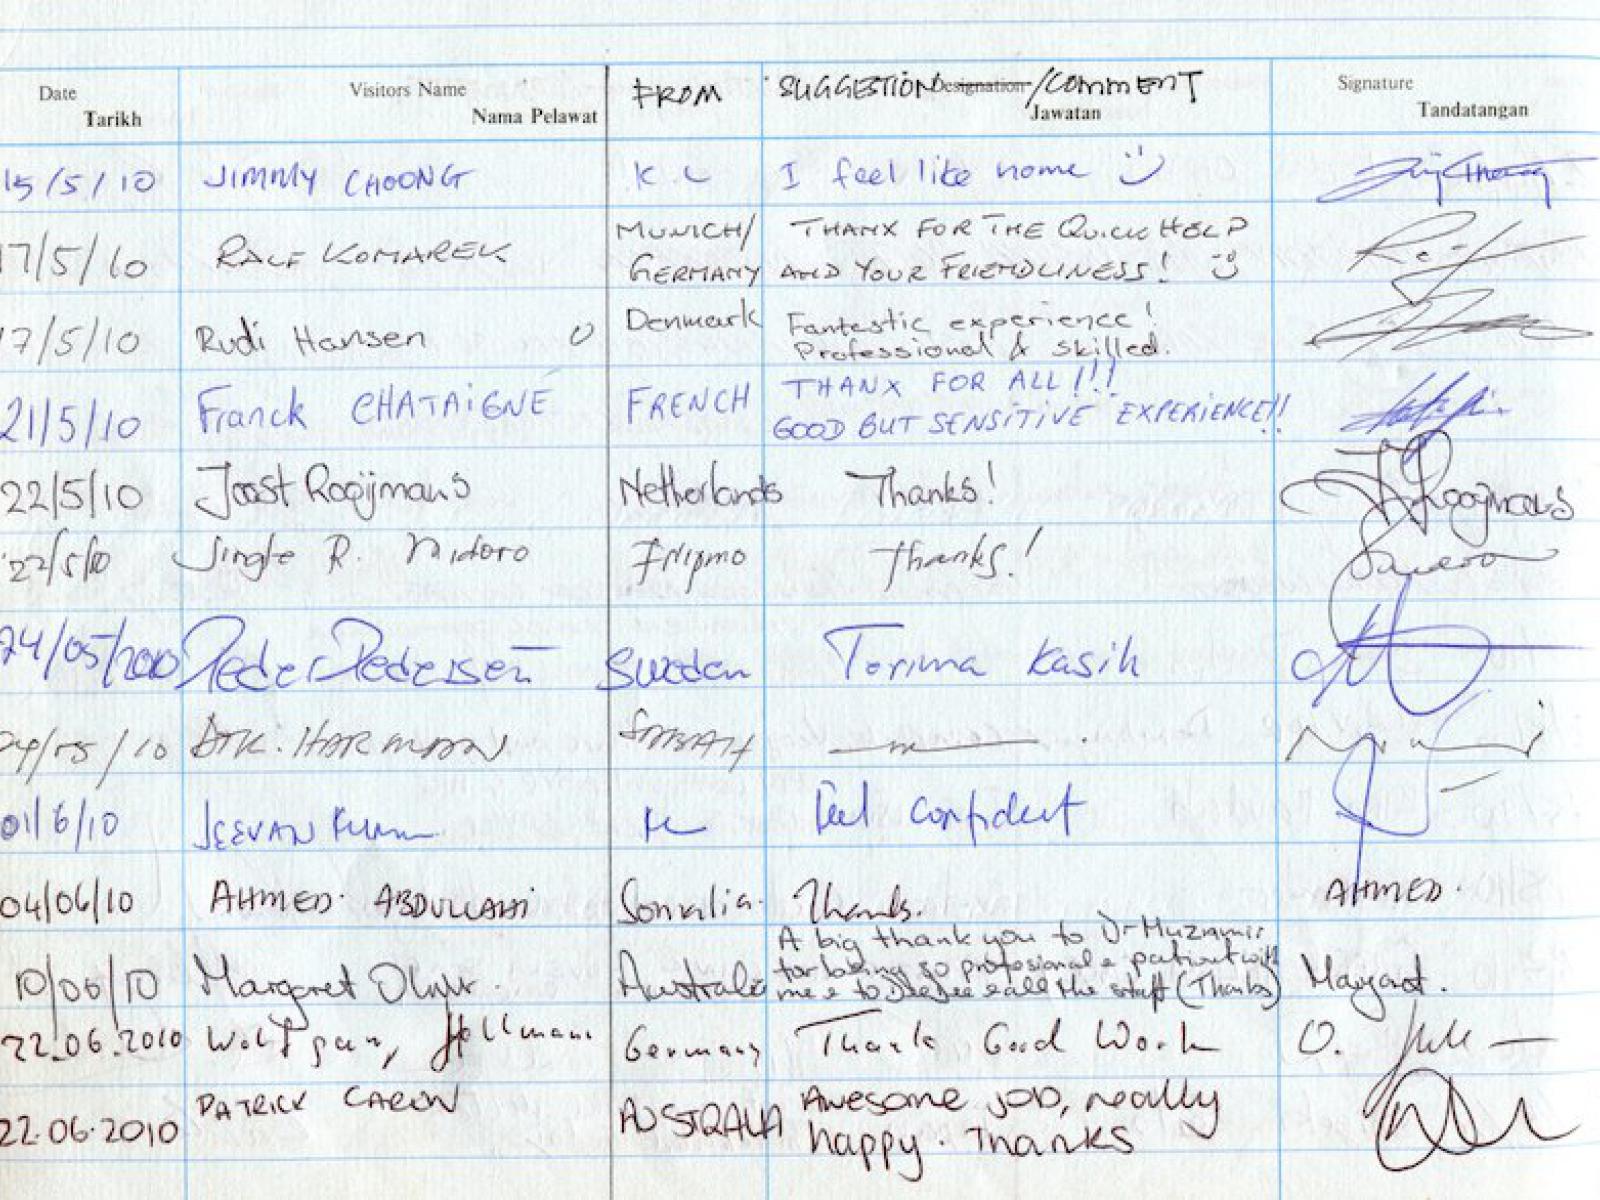 Date Visitors Name FROM SUGGESTION Designation /COMMENT Signature
Tarikh Nama Pelawat Jawatan Tandatangan
15/5/10 JIMMY CHOONG K L I feel like home
17/5/10 RALF KOMAREK MUNICH/ THANX FOR THE QUICK HELP
GERMANY AND YOUR FRIENDLINESS!
17/5/10 Rudi Hansen Denmark Fantestic experience!
Professional & skilled.
21/5/10 Franck CHATAIGNÉ FRENCH THANX FOR ALL!!!
GOOD BUT SENSITIVE EXPERIENCE!!
22/5/10 Joost Rooijmans Netherlands Thanks! Rooijmans
22/5/10 Jingle R. Thanks!
24/05/2010 Peder Pedersen Sweden Torima Kasih
24/05/10 HARMAN SABAH
01/6/10 JEEVAN KL Feel confident
04/06/10 AHMED ABDULLAHI Somalia. Thanks. AHMED.
10/06/10 Margaret Australia A big thank you to Dr Muziamir
for being so profesional & patient with
me & to & all the staff (Thanks) Margaret.
22.06.2010 Wolfgang Hollmann Germany Thanks Good Work
22.06.2010 PATRICK CARON AUSTRALIA Awesome job, really
happy. Thanks